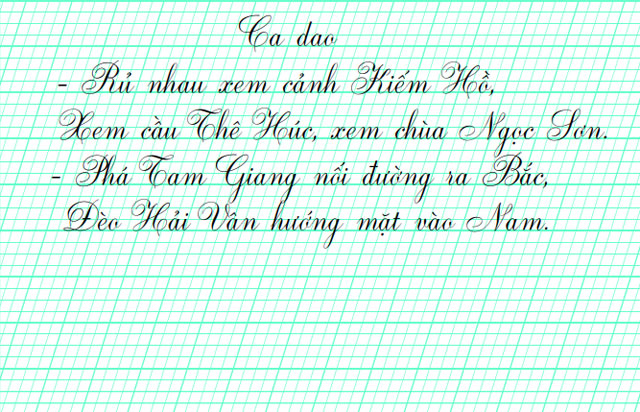 Ca dao
- Rủ nhau xem cảnh Kiếm Hồ,
Xem cầu Thê Húc, xem chùa Ngọc Sơn.
- Phá Tam Giang nối đường ra Bắc,
Đèo Hải Vân hướng mặt vào Nam.